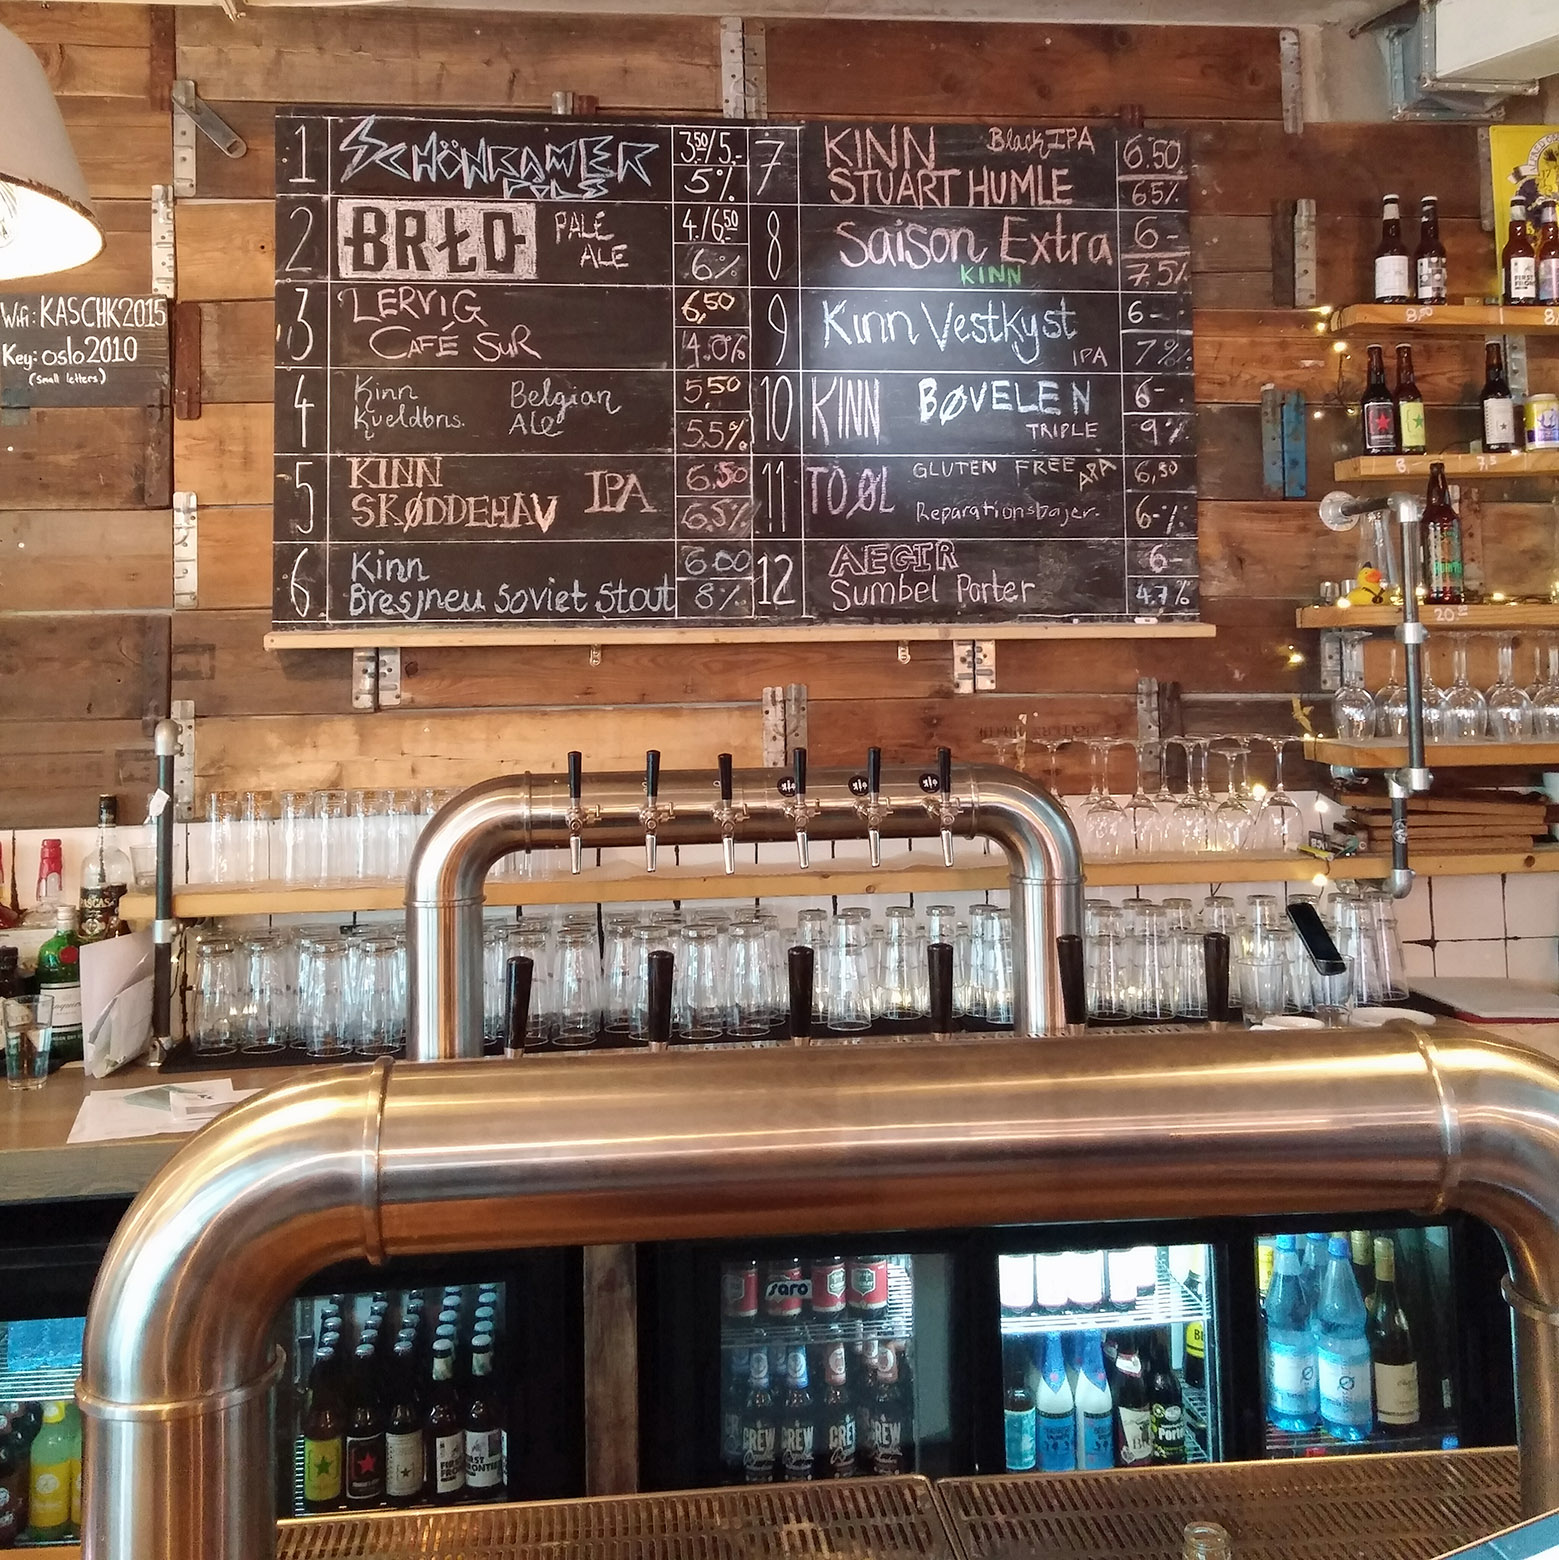 1
SCHÖNRAMER
PILS
3.50/5.-
5%
2
BRŁO
PALE
ALE
4./6.50
6%
3
LERVIG
CAFÉ SUR
6,50
4.0%
4
Kinn
Belgian
Ale
5.50
5.5%
5
KINN
SKØDDEHAV IPA
6.50
6,5%
6
Kinn
Bresjneu Soviet Stout
6.00
8%
7
KINN Black IPA
STUART HUMLE
6.50
65%
8
Saison Extra
KINN
6-
7.5%
9
Kinn Vestkyst
IPA
6-
7%
10
KINN BØVELEN
TRIPLE
6-
9%
11
TO ØL
GLUTEN FREE APA
Reparationsbajer.
6,50
6-%
12
AEGIR
Sumbel Porter
6-
4.7%
Wifi: KASCHK2015
Key: oslo2010
(small letters)
20.-
saro
CREW
CREW
CREW
CREW
FIRST
FRONTIER